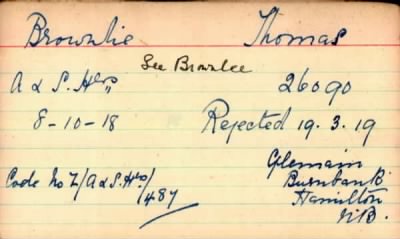 Brownlie Thomas
See Brownlee
A & S. Hrs 26090
8-10-18 Rejected 19.3.19
Glemain
Code No Z/A&S.Hrs/487 Burnbank
Hamilton
N.B.